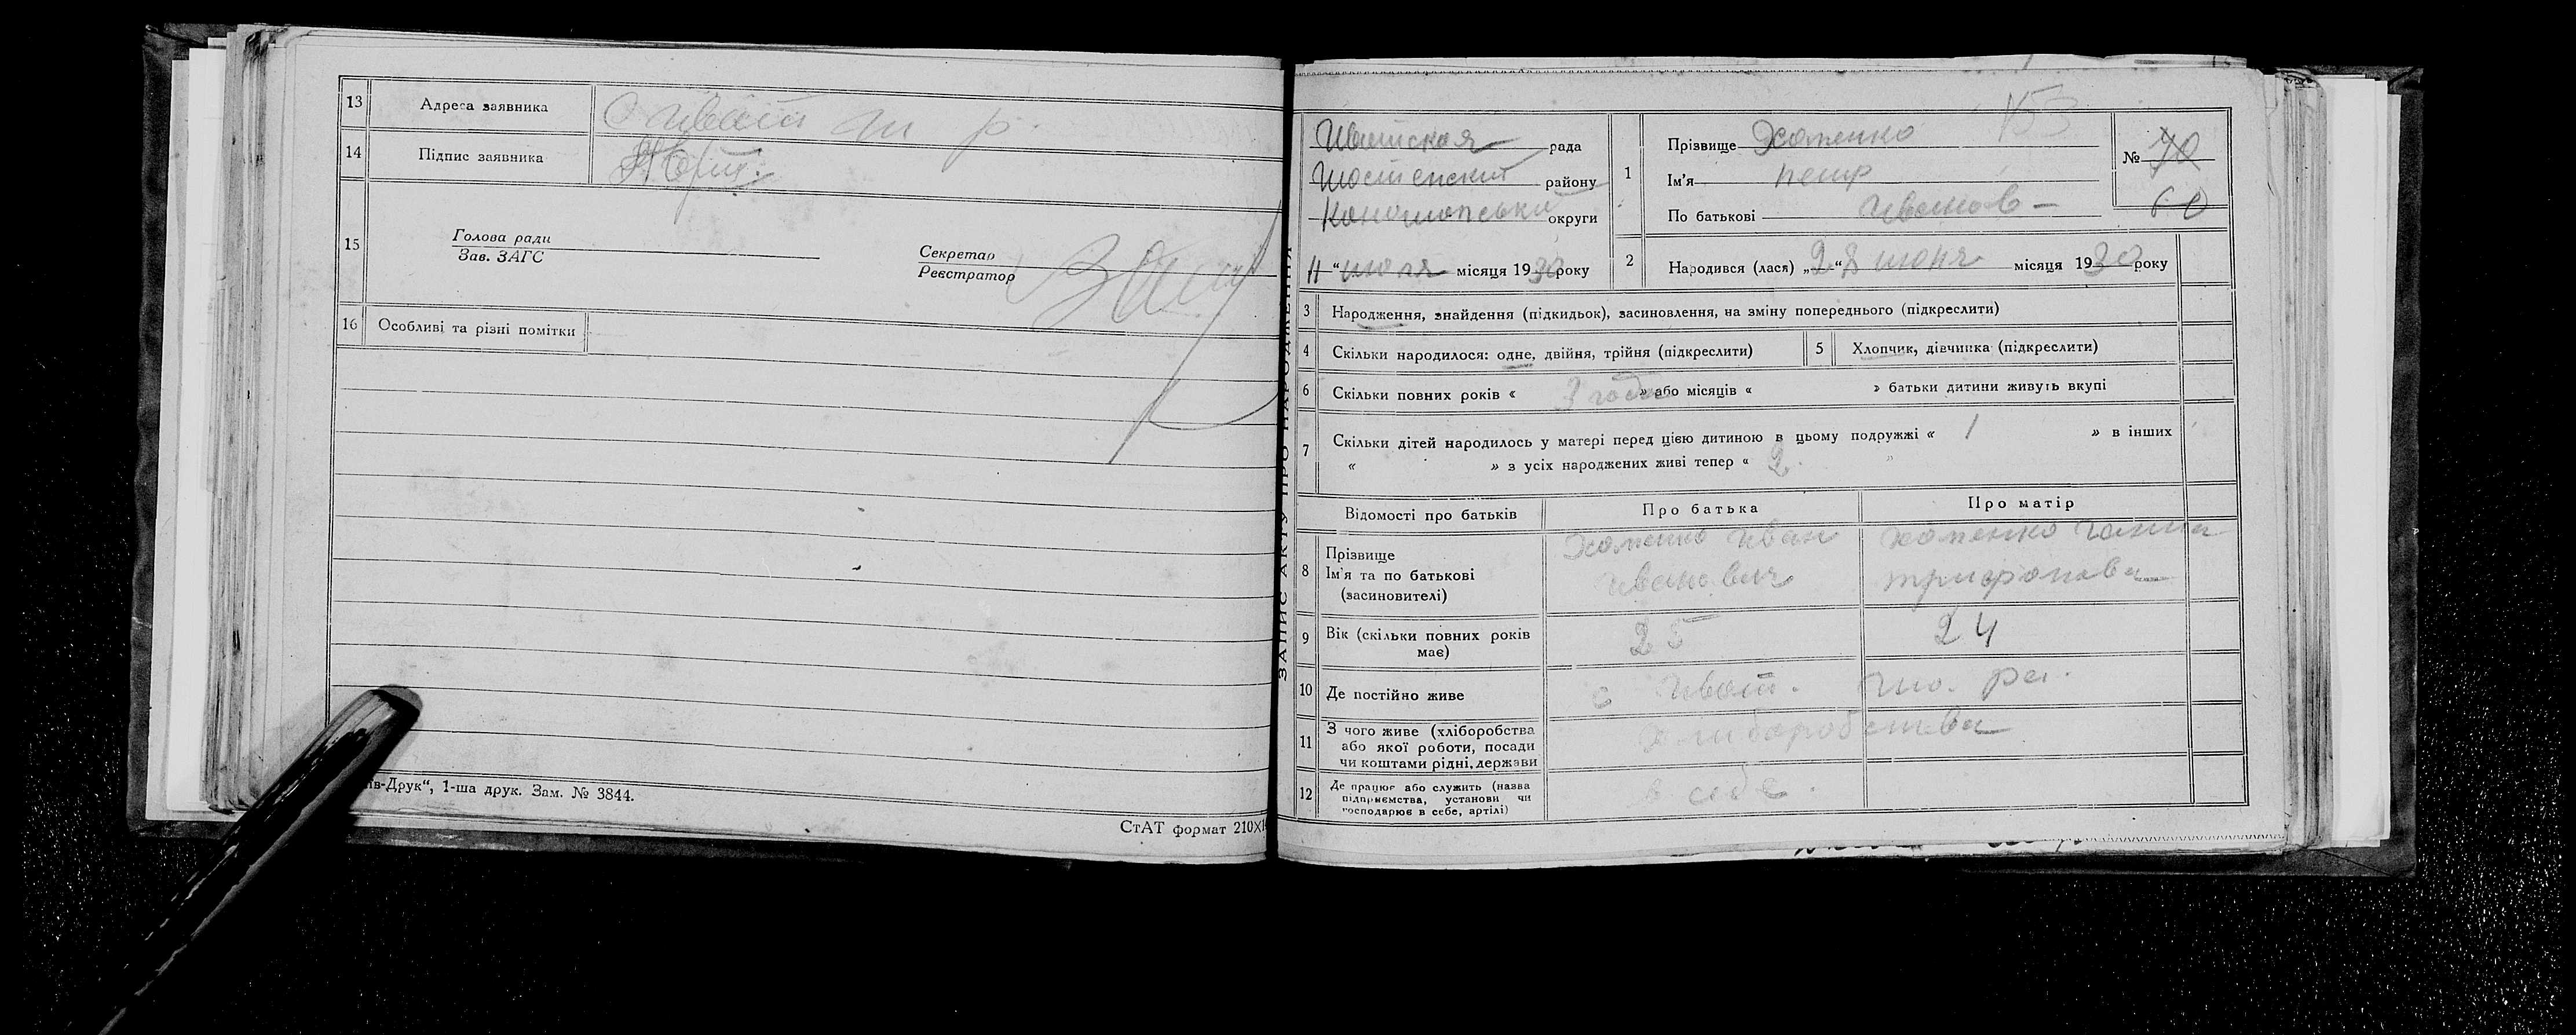 13 Адреса заявника с Ивот ш р.
14 Підпис заявника
15 Голова ради
Зав. ЗАГС
Секретар
Реєстратор
16 Особливі та різні помітки
в-Друк“, 1-ша друк. Зам. № 3844.
СтАТ формат 210×1
ЗАПИС АКТУ ПРО НАРОДЖЕННЯ
153
Ивотская рада
Шостенский району
Конотопський округи
11 “ июля місяця 1930 року
1 Прізвище Хоменко
Ім'я петр
По батькові Иванов
№ 70
60
2 Народився (лася) „28“ июня місяця 1930 року
3 Народження, знайдення (підкидьок), засиновлення, на зміну попереднього (підкреслити)
4 Скільки народилося: одне, двійня, трійня (підкреслити) 5 Хлопчик, дівчинка (підкреслити)
6 Скільки повних років « 3 года » або місяців « » батьки дитини живуть вкупі
7 Скільки дітей народилось у матері перед цією дитиною в цьому подружжі « 1 » в інших
« » з усіх народжених живі тепер « 2 »
Відомості про батьків Про батька Про матір
8 Прізвище
Ім'я та по батькові
(засиновителі)
Хоменко Иван
Иванович
хоменко Ганна
трифонова
9 Вік (скільки повних років
має)
25 24
10 Де постійно живе с Ивот. шо. ра.
11 З чого живе (хліборобства
або якої роботи, посади
чи коштами рідні, держави
хлиборобства
12 Де працює або служить (назва
підприємства, установи чи
господарює в себе, артілі)
в себе.